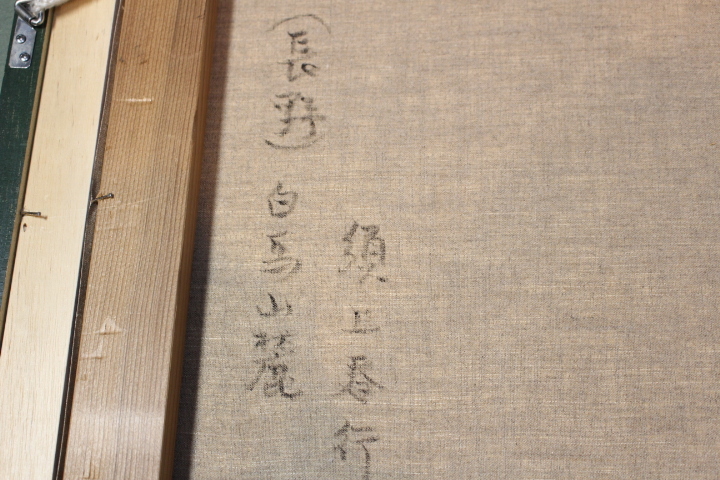 須上春行
(長野) 白馬山麓